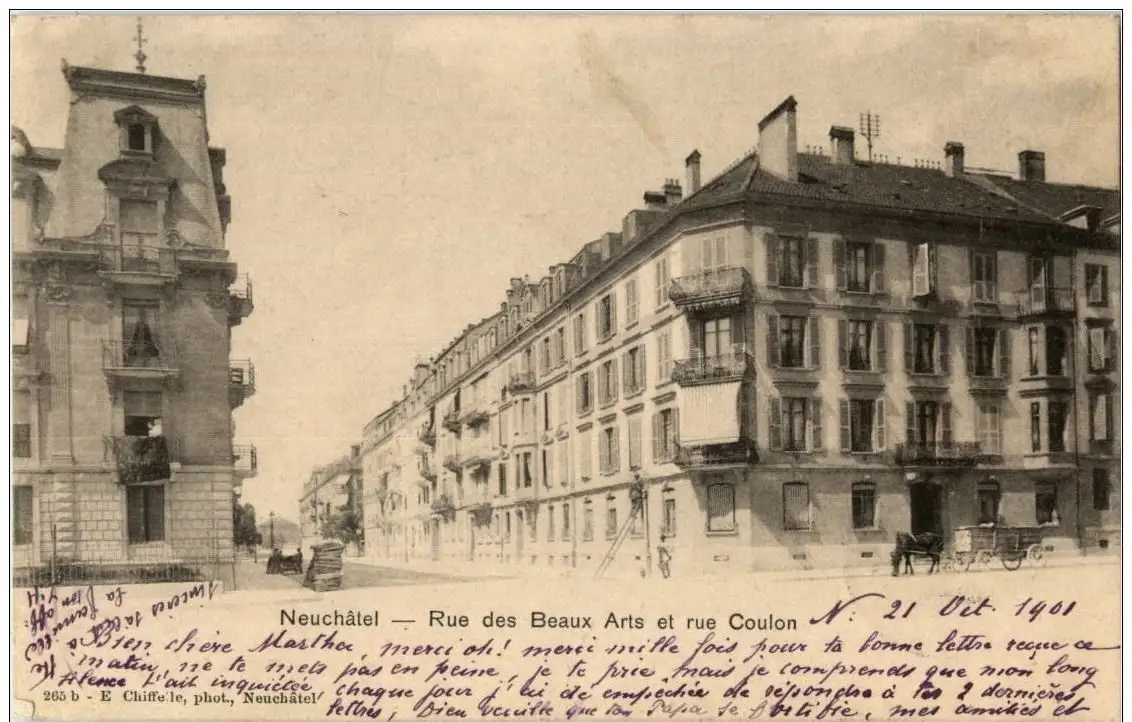 Neuchâtel — Rue des Beaux Arts et rue Coulon
N. 21 Oct. 1901
Bien chère Martha, merci oh! merci mille fois pour ta bonne lettre reçue ce
matin, ne te mets pas en peine, je te prie mais je comprends que mon long
silence t'ait inquiétée, chaque jour j'ai été empêchée de répondre à tes 2 dernières
lettres, Dieu veuille que ton Papa se fortifie, mes amitiés et
265 b - E Chiffelle, phot., Neuchâtel